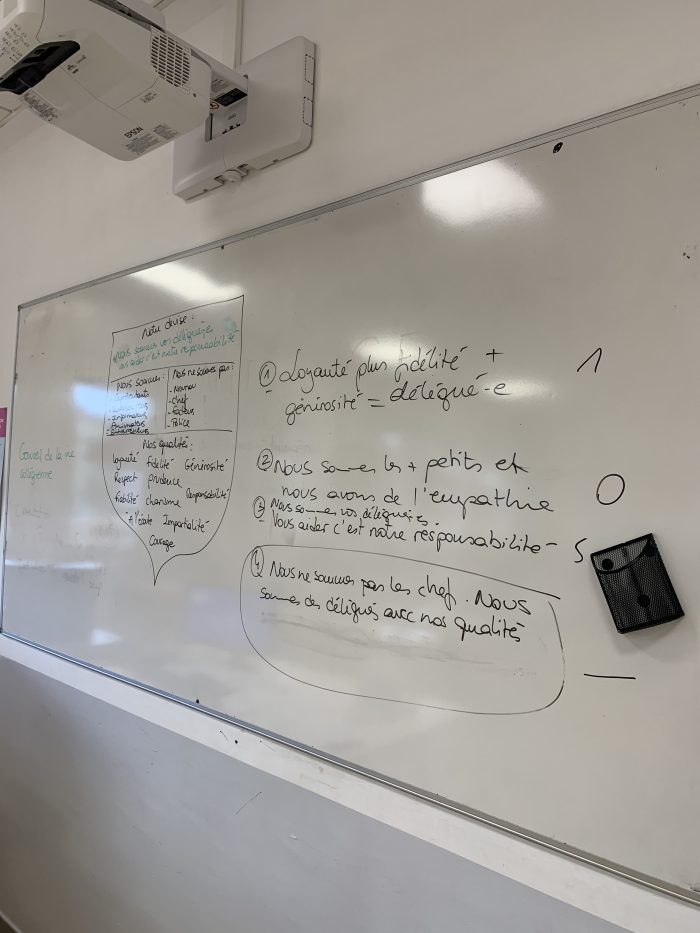 EPSON
Notre devise :
Nous sommes vos délégué-es
vous aider c'est notre responsabilité
Nous sommes :
- Informateurs
- Animateurs
Nous ne sommes pas :
- Nounou
- chef
- Facteurs
- Police
Nos qualités :
Loyauté fidélité Générosité
Respect prudence
fiabilité charisme Responsabilité
à l'écoute Impartialité
Courage
Conseil de la vie
collégienne
① Loyauté plus fidélité +
générosité = délégué-e
1
② Nous sommes les + petits et
nous avons de l'empathie
0
③ Nous sommes vos délégué-es.
Vous aider c'est notre responsabilité
5
④ Nous ne sommes pas les chef. Nous
sommes des délégués avec nos qualités
—